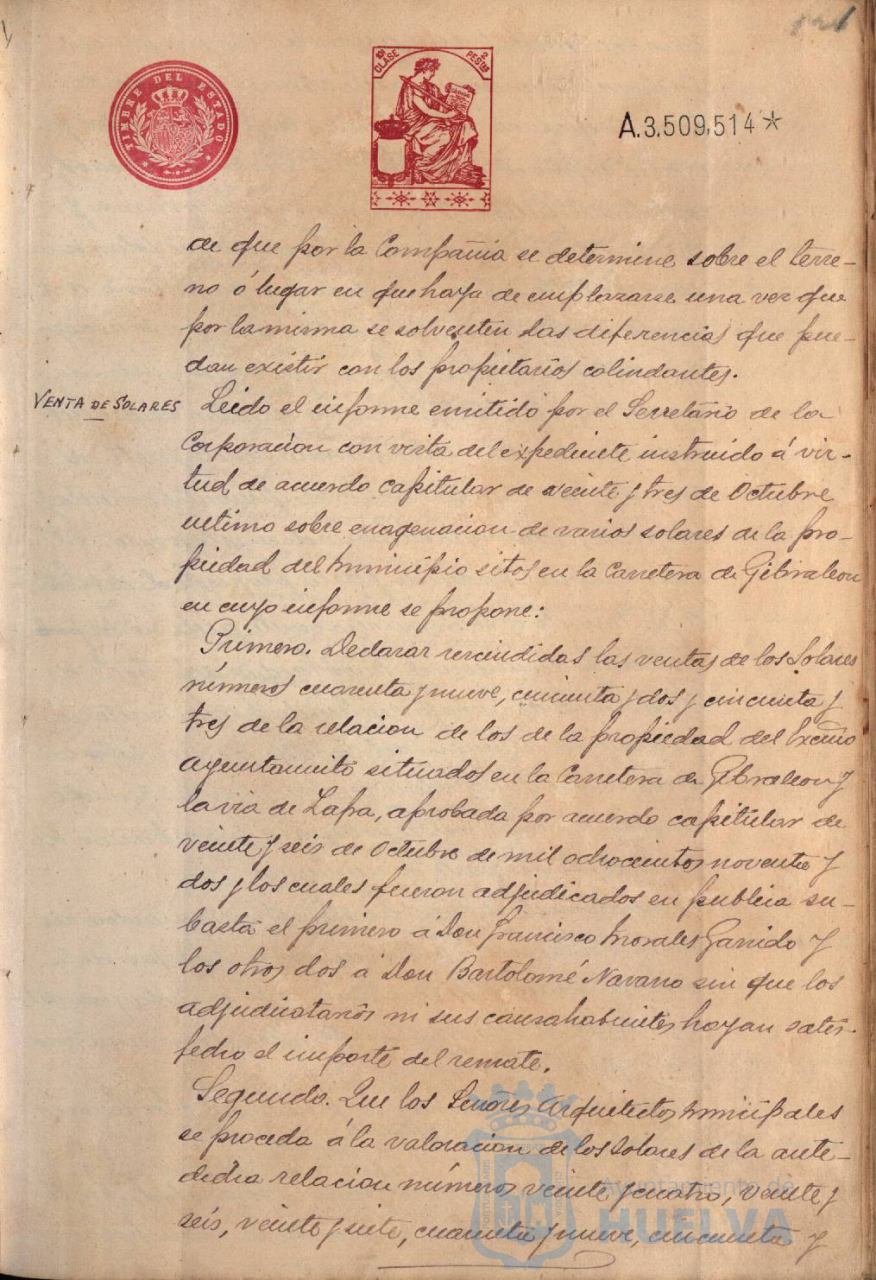 121
TIMBRE DEL ESTADO
CLASE 10ª
2 PESTAS
A.3,509,514*
de que por la Compañia se determine sobre el terre-
no ó lugar en que haya de emplazarse una vez que
por la misma se solventen las diferencias que pue-
dan existir con los propietarios colindantes.
VENTA DE SOLARES
Leido el informe emitido por el Secretario de la
Corporacion con vista del expediente instruido á vir-
tud de acuerdo capitular de veinte y tres de Octubre
ultimo sobre enagenacion de varios solares de la pro-
piedad del Municipio sitos en la Carretera de Gibraleon
en cuyo informe se propone:
Primero. Declarar rescindidas las ventas de los Solares
números cuarenta y nueve, cincuenta y dos y cincuenta y
tres de la relacion de los de la propiedad del Excmo
Ayuntamiento situados en la Carretera de Gibraleon y
la via de Zafra, aprobada por acuerdo capitular de
veinte y seis de Octubre de mil ochocientos noventa y
dos y los cuales fueron adjudicados en publica su-
basta el primero á Don Francisco Morales Garrido y
los otros dos á Don Bartolomé Navarro sin que los
adjudicatarios ni sus causahabientes hayan satis-
fecho el importe del remate.
Segundo. Que los Señores Arquitectos municipales
se proceda á la valoracion de los solares de la ante-
dicha relacion números veinte y cuatro, veinte y
seis, veinte y siete, cuarenta y nueve, cincuenta y
Ayuntamiento de
HUELVA